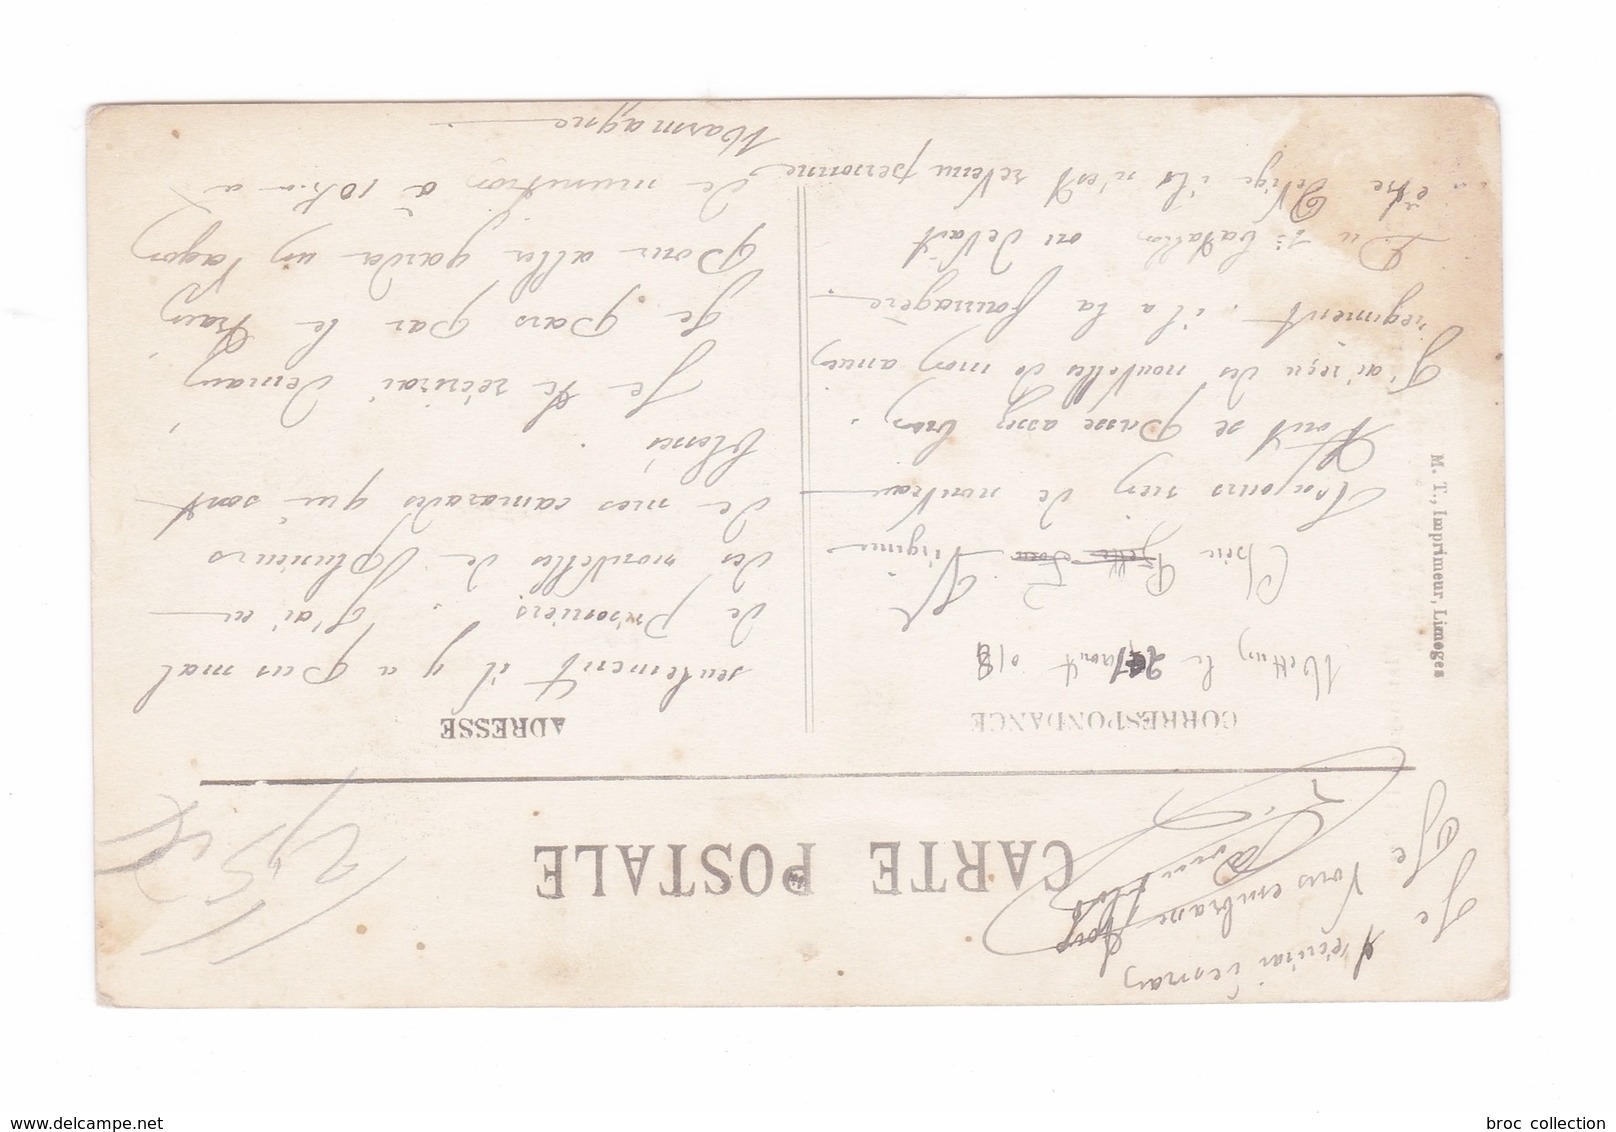 CARTE POSTALE
CORRESPONDANCE
ADRESSE
M. T., Imprimeur, Limoges
le 21 aout 018
Chère Petite Soeur Virginie
Toujours rien de nouveau
Tout se passe assez bien.
J'ai reçu des nouvelles de mon ancien
régiment. il a la fourragère.
Du 1er bataillon ou devait
être ils n'est revenu personne
seulement il y a pas mal
de prisoniers. J'ai eu
des nouvelles de plusieurs
de mes camarades qui sont
blessés
Je te récrirai demain,
Je pars par le train,
pour aller garder un vagon
de munition à 10 k. a
Marmagne
Je t'écrirai demain
Je Vous embrasse
295
broc collection